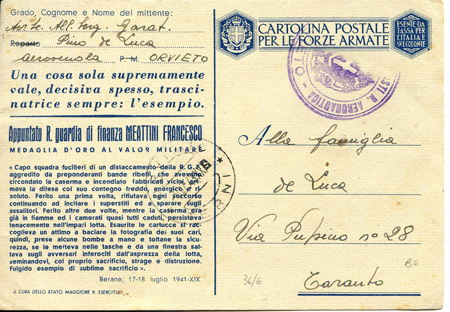 Grado, Cognome e Nome del mittente:
All. Serg.
Reparto Pino de Luca
P. M. ORVIETO
Una cosa sola supremamente
vale, decisiva spesso, trasci-
natrice sempre: l'esempio.
Appuntato R. guardia di finanza MEATTINI FRANCESCO
MEDAGLIA D'ORO AL VALOR MILITARE
« Capo squadra fucilieri di un distaccamento della R. G. F.
aggredito da preponderanti bande ribelli, che avevano
circondato la caserma e incendiato fabbricati vicini, ani-
mava la difesa col suo contegno freddo, energico e ri-
soluto. Ferito una prima volta, rifiutava ogni soccorso
continuando ad incitare i superstiti ed a sparare sugli
assalitori. Ferito altre due volte, mentre la caserma era
già in fiamme ed i camerati quasi tutti caduti, persisteva
tenacemente nell'impari lotta. Esaurite le cartucce si rac-
coglieva un attimo a baciare la fotografia dei suoi cari,
quindi, prese alcune bombe a mano e toltane la sicu-
rezza, se le metteva nelle tasche e da una finestra sal-
tava sugli avversari inferociti dall'asprezza della lotta,
seminandovi, col proprio sacrificio, strage e distruzione.
Fulgido esempio di sublime sacrificio ».
Berane, 17-18 luglio 1941-XIX.
A CURA DELLO STATO MAGGIORE R. ESERCITO
CARTOLINA POSTALE
PER LE FORZE ARMATE
ESENTE DA
TASSA PER
L'ITALIA E
SUE COLONIE
R. AERONAUTICA
Alla famiglia
de Luca
Via Pupino n° 28
Taranto
36/6
B6